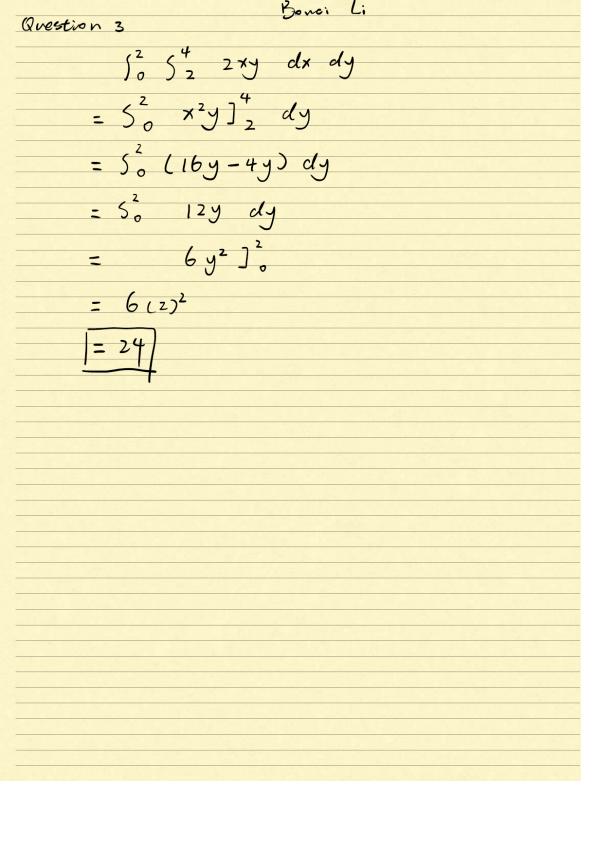 Bonci Li
Question 3
∫₀² ∫₂⁴ 2xy dx dy
= ∫₀² x²y]₂⁴ dy
= ∫₀² (16y - 4y) dy
= ∫₀² 12y dy
= 6y²]₀²
= 6(2)²
= 24